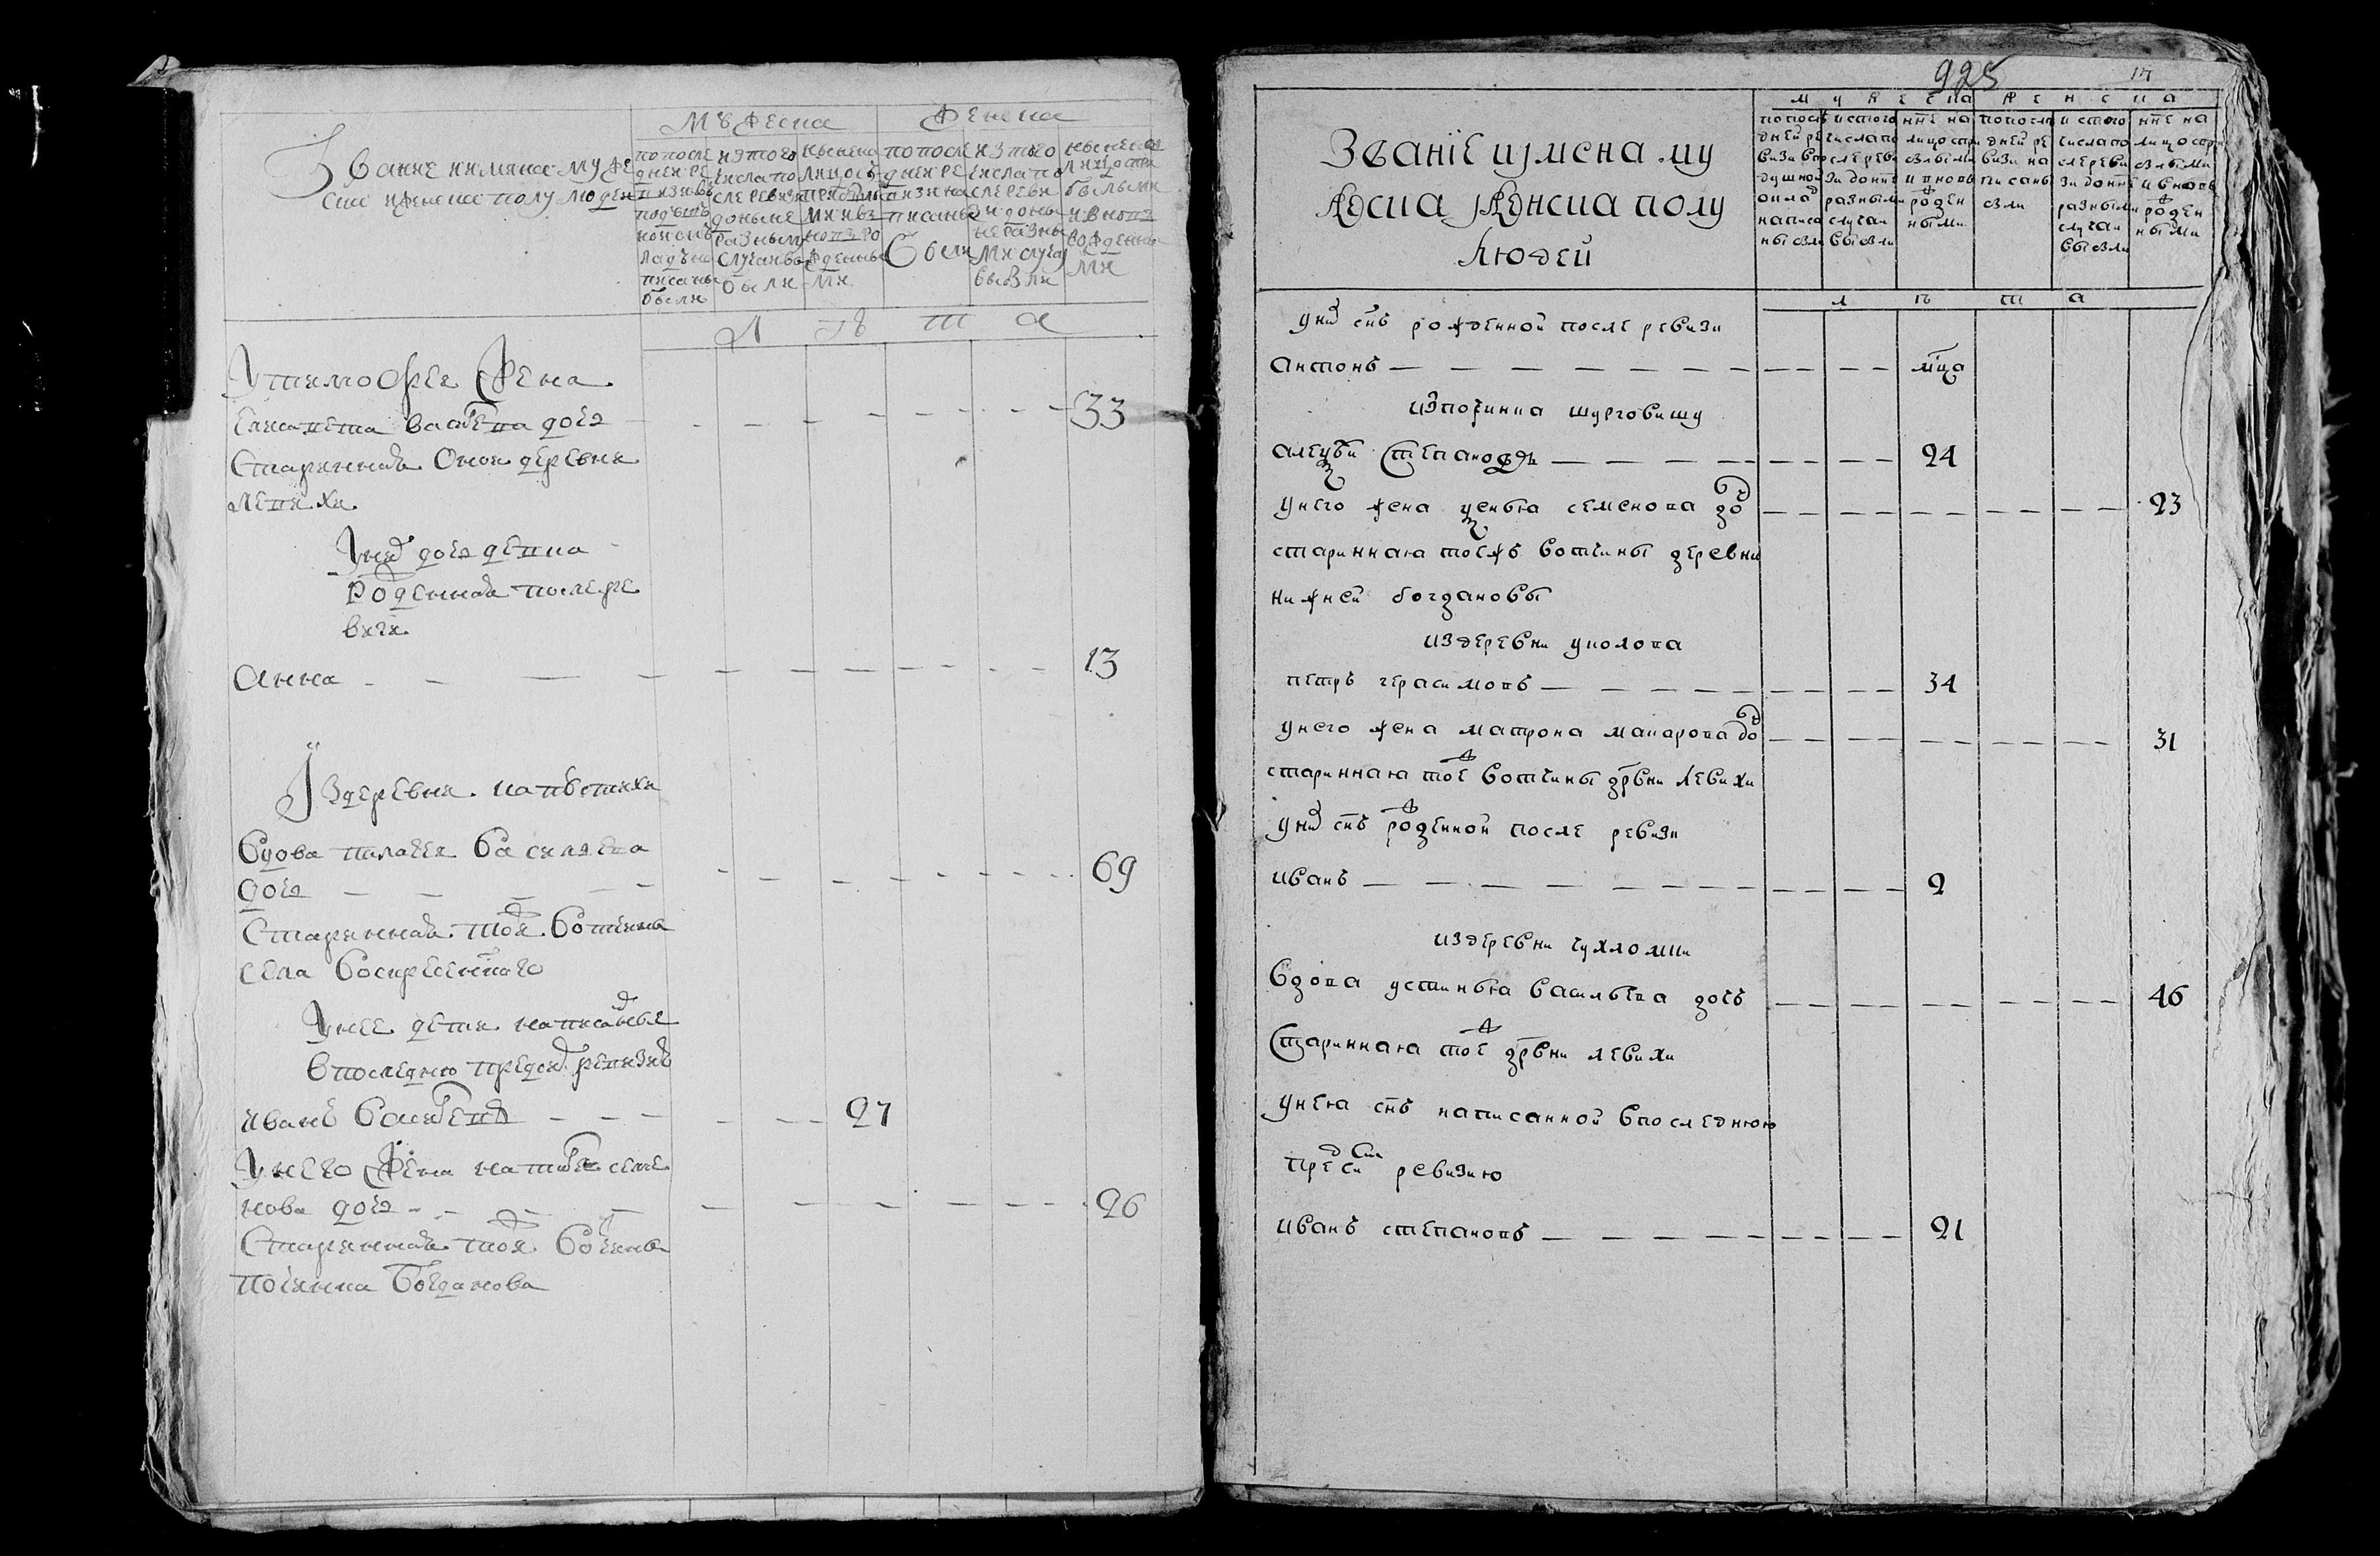 Звание имяна муже
ска и женска полу людей
Мужеска
Женска
по после
дней ре
визии в
под
ной окъ
ладъ на
писаны
были
из того
числа по
сле ревизи
до ныне
разными
случаи вы
были
ныне на
лицо с
прибылы
ми и в
новь ро
жденны
ми
по после
дней ре
визи на
писаны
были
из того
числа по
сле реви
зи до ны
не разны
ми случа
и выбыли
ныне на
лицо с при
былыми
и вновь
рожденны
ми
Л ѣ т а
У тимофея жена
елисавета васильева дочь 33
Старинная оной деревни
лепихи
У них дочь девка
Рожденная после ре
визи
Анна 13
Издеревни
Вдова пелагея василева
дочь 69
Старинная тоя ж вотчины
села воскресенского
У нее дети написанные
в последнюю пред сею ревизию
иванъ васильевъ 27
У него жена наталья семе
нова дочь 26
Старинная тоя ж вотчины
починка Богданова
925
Званiе и имена му
жеска и женска полу
людей
мужеска
женска
по после
дней ре
визи в по
душной
оклад
написа
ны были
ис того
числа по
сле реви
зи до нне
разными
случаи
выбыли
нне на
лицо с при
былыми
и вновь
рожден
ными
по после
дней ре
визи на
писаны
были
и с того
числа по
сле реви
зи до нне
разными
случаи
выбыли
нне на
лицо с при
былыми
и вновь
рожден
ными
л ѣ т а
у них снъ рожденной после ревизи
антонъ мца
ис починка
алексѣй степановъ 24
у него жена ксенья семенова дочь 23
стариннаю тоежъ вотчины деревни
нижней богдановы
из деревни
петръ герасимовъ 34
у него жена матрона макарова дочь 31
стариннаю тое ж вотчины дрвни левихи
у них снъ рожденной после ревизи
иванъ 2
из деревни чухломки
вдова устинья васильева дочь 46
стариннаю тое ж дрвни левихи
у нею снъ написанной в последнюю
пред сим ревизию
иванъ степановъ 21